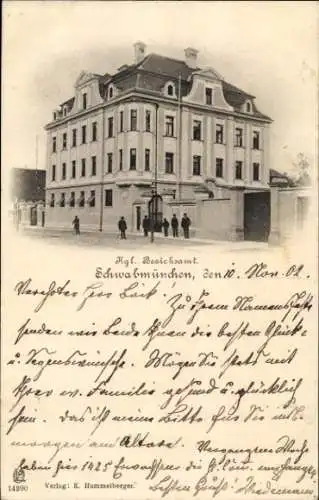 Kgl. Bezirksamt.
Schwabmünchen, den 10. Nov. 02.
Verehrter Herr Böck! Zu Ihrem Namensfeste
senden wir Beide Ihnen die besten Glück-
u. Segenswünsche. Mögen Sie stets mit
Ihrer w. Familie gesund u. glücklich
sein. das ist meine Bitte für Sie
morgen am Altare. Vergangene Woche
haben hier 1425 Erwachsene die hl.
Besten Grüße!
14290 Verlag: K. Hammelberger.